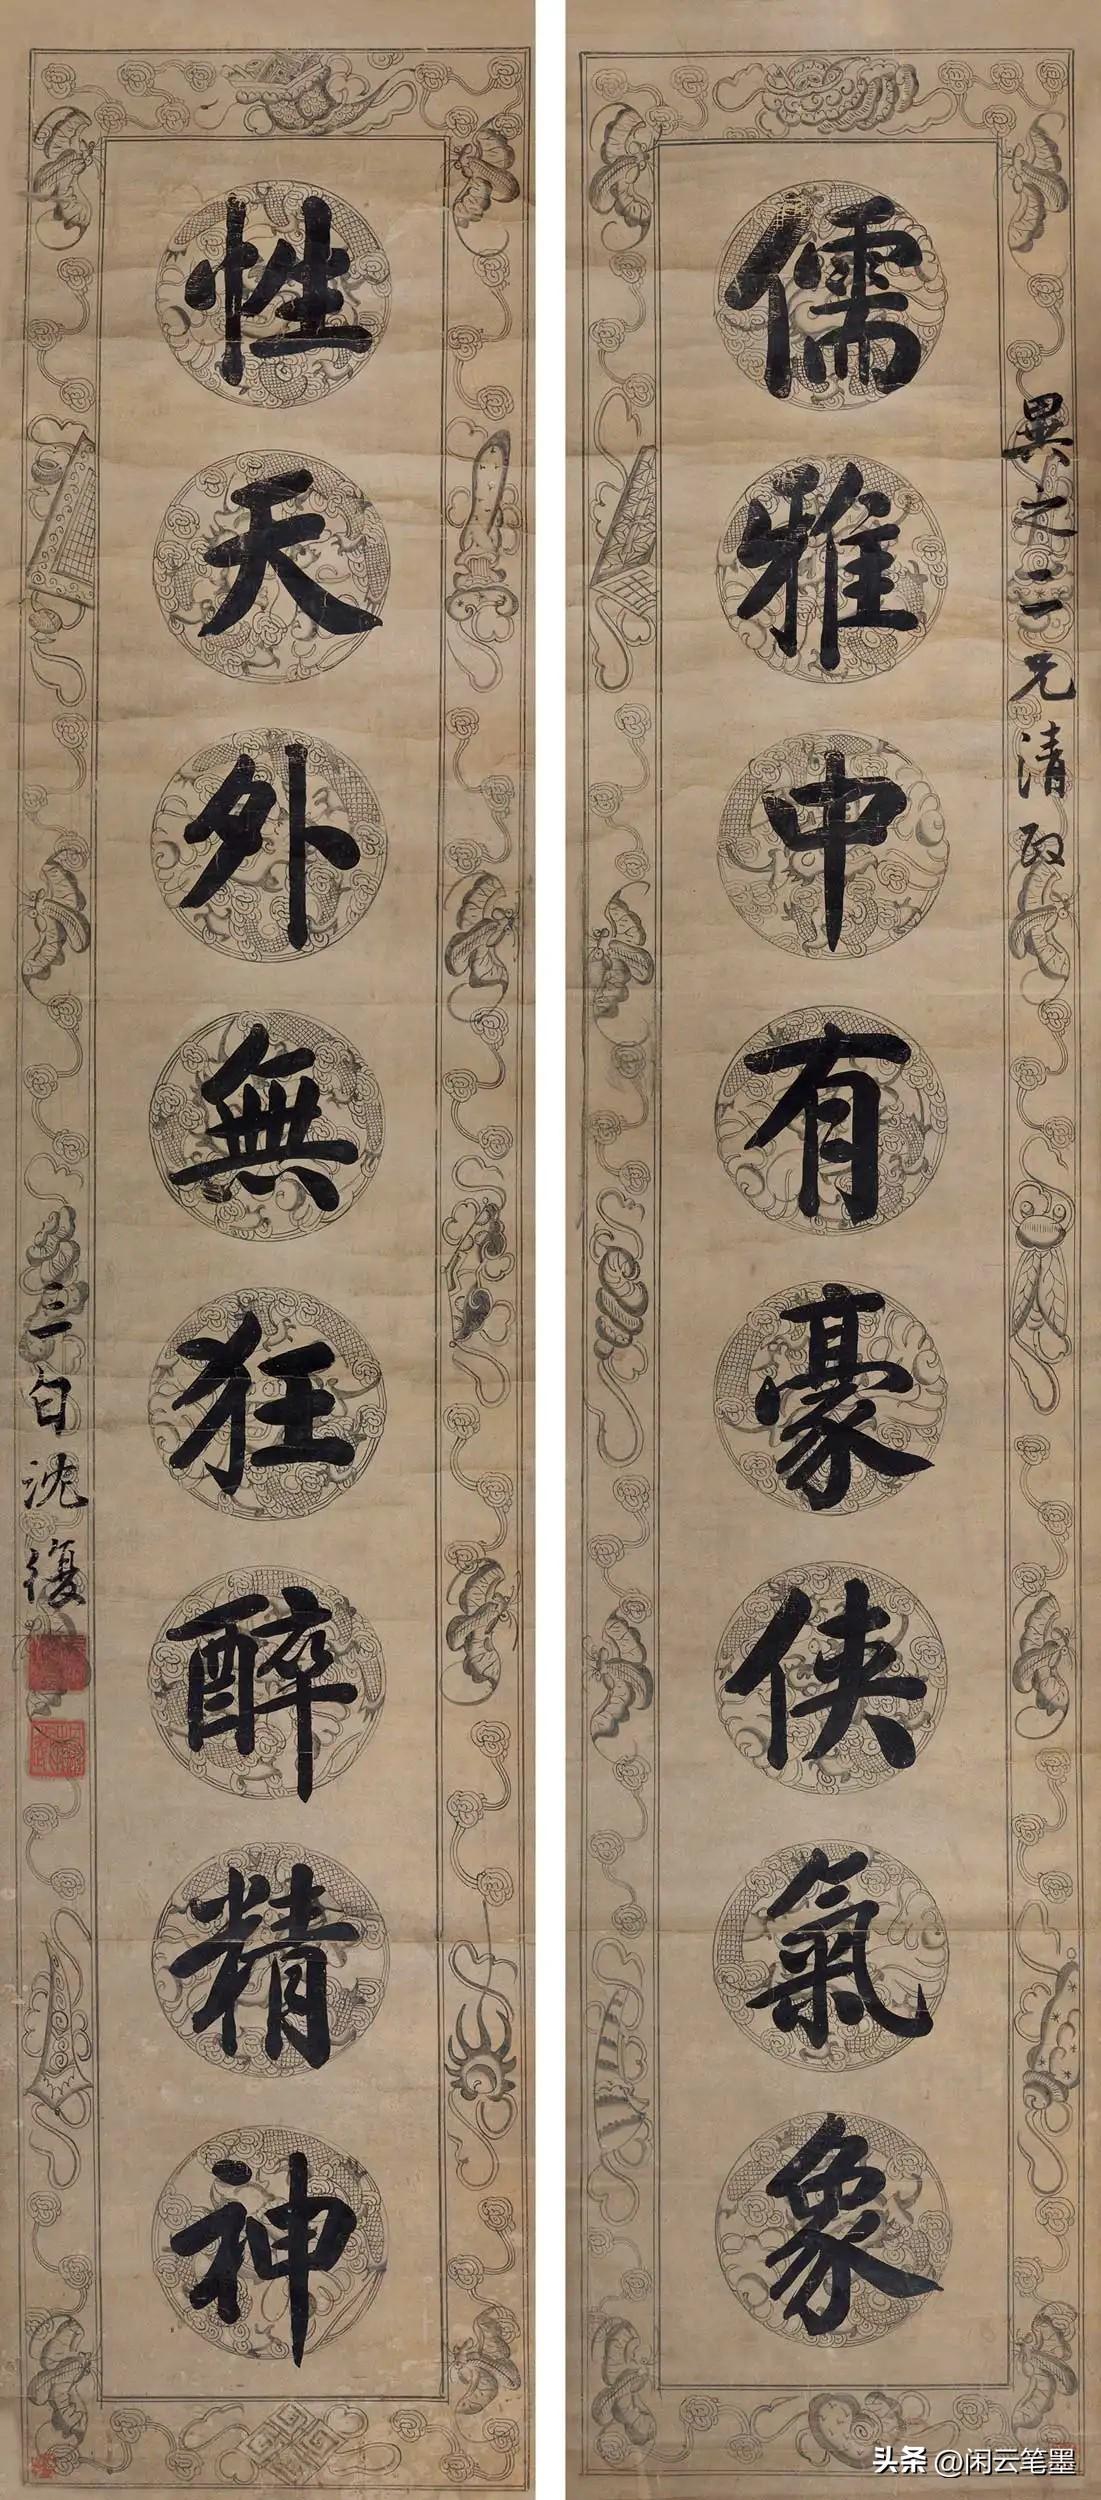 異之二兄清政
儒雅中有豪俠氣象
性天外無狂醉精神
三白沈復
头条 @闲云笔墨